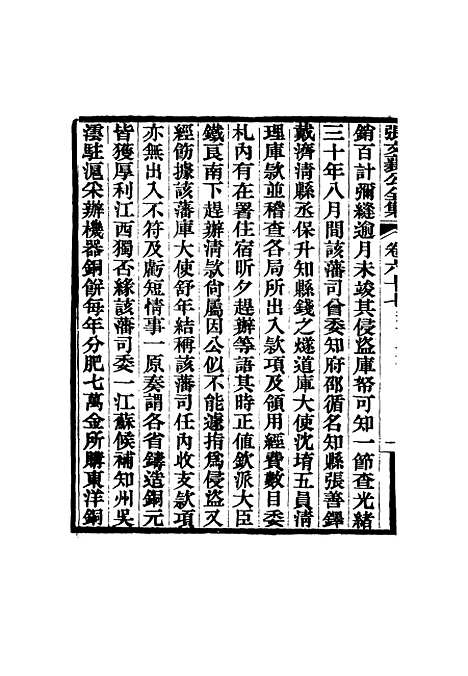 張文襄公全集 卷六十七
銷百計彌縫逾月未竣其侵盜庫帑可知一節查光緒
三十年八月間該藩司曾委知府邵循名知縣張善鐸
戴濟清縣丞保升知縣錢之燧道庫大使沈堉五員清
理庫款並稽查各局所出入款項及領用經費數目委
札內有在署住宿昕夕趕辦等語其時正值欽派大臣
鐵良南下趕辦清款尚屬因公似不能遽指為侵盜又
經飭據該藩庫大使舒年結稱該藩司任內收支款項
亦無出入不符及虧短情事一原奏謂各省鑄造銅元
皆獲厚利江西獨否緣該藩司委一江蘇候補知州吳
澐駐滬采辦機器銅餅每年分肥七萬金所購東洋銅